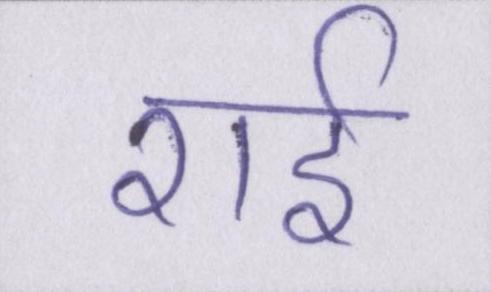 राई